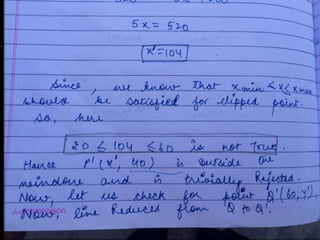 5x = 520
x' = 104
Since, we know that xmin ≤ x ≤ xmax
should be satisfied for clipped point.
So, here
20 ≤ 104 ≤ 60 is not True.
Hance P'(x', 40) is outside the
windone and is trivially Rejected.
Now, let us check for point Q'(60, y').
Now, line Reduces from Q to Q'.